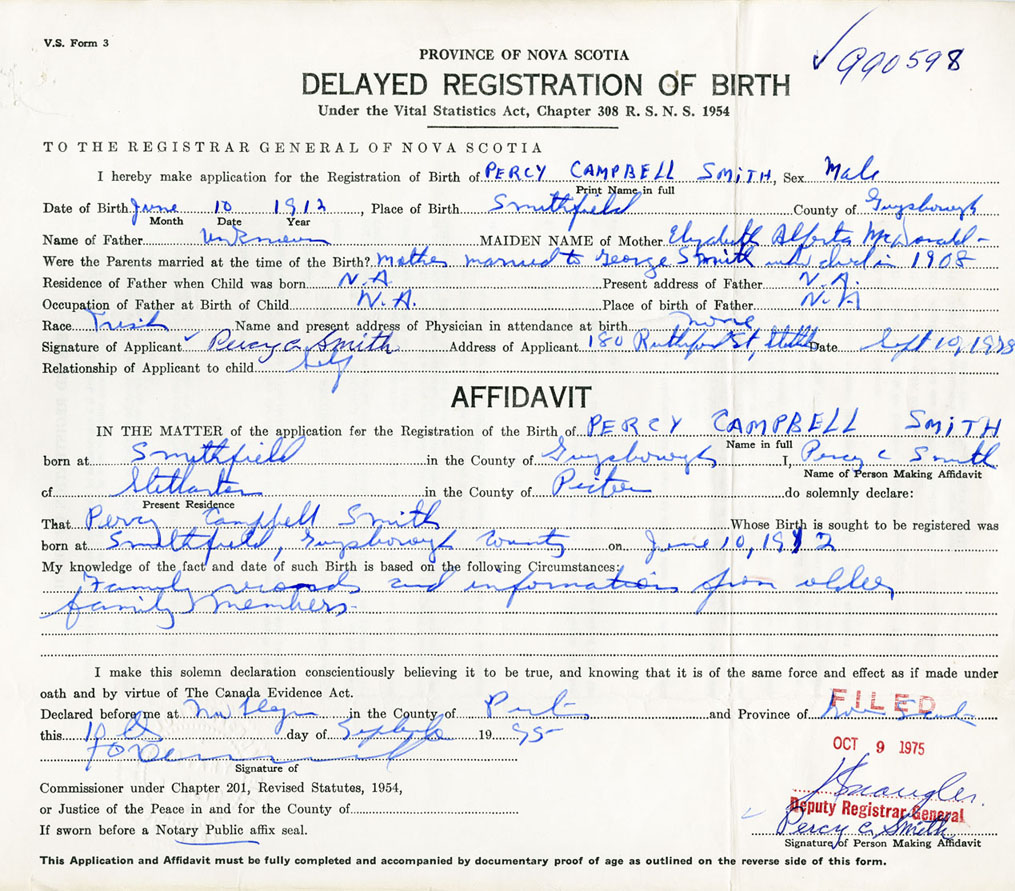 V.S. Form 3
990598
PROVINCE OF NOVA SCOTIA
DELAYED REGISTRATION OF BIRTH
Under the Vital Statistics Act, Chapter 308 R. S. N. S. 1954
TO THE REGISTRAR GENERAL OF NOVA SCOTIA
I hereby make application for the Registration of Birth of PERCY CAMPBELL SMITH, Sex Male
Print Name in full
Date of Birth June 10 1912, Place of Birth Smithfield County of Guysborough
Month Date Year
Name of Father Unknown MAIDEN NAME of Mother Elizabeth Alferta McDonald
Were the Parents married at the time of the Birth? Mother married to George Smith who died in 1908
Residence of Father when Child was born N.A. Present address of Father N.A.
Occupation of Father at Birth of Child N.A. Place of birth of Father N.A
Race Irish Name and present address of Physician in attendance at birth none
Signature of Applicant Percy C. Smith Address of Applicant 180 St, Date Sept 10, 
Relationship of Applicant to child Self
AFFIDAVIT
IN THE MATTER of the application for the Registration of the Birth of PERCY CAMPBELL SMITH
Name in full
born at Smithfield in the County of Guysborough I, Percy C Smith
Name of Person Making Affidavit
of Stellarton in the County of Pictou do solemnly declare:
Present Residence
That Percy Campbell Smith Whose Birth is sought to be registered was
born at Smithfield, Guysborough County on June 10, 1912
My knowledge of the fact and date of such Birth is based on the following Circumstances:
Family records and information from older
family members.
I make this solemn declaration conscientiously believing it to be true, and knowing that it is of the same force and effect as if made under
oath and by virtue of The Canada Evidence Act.
FILED
Declared before me at in the County of and Province of Nova Scotia
this day of September 19 75
OCT 9 1975
Signature of
Commissioner under Chapter 201, Revised Statutes, 1954,
or Justice of the Peace in and for the County of
Deputy Registrar General
If sworn before a Notary Public affix seal.
Percy C. Smith
Signature of Person Making Affidavit
This Application and Affidavit must be fully completed and accompanied by documentary proof of age as outlined on the reverse side of this form.